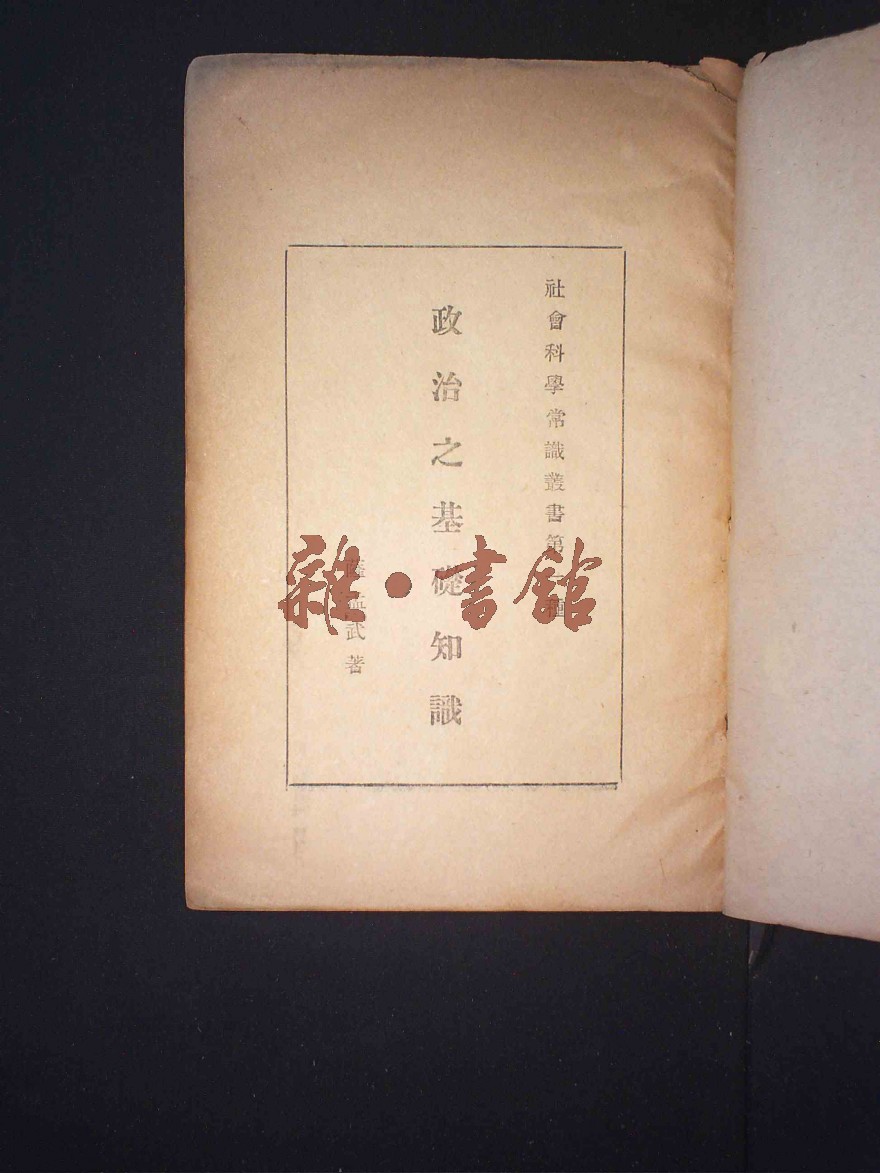 社會科學常識叢書第 種
政治之基礎知識
薩孟武著
雜·書館